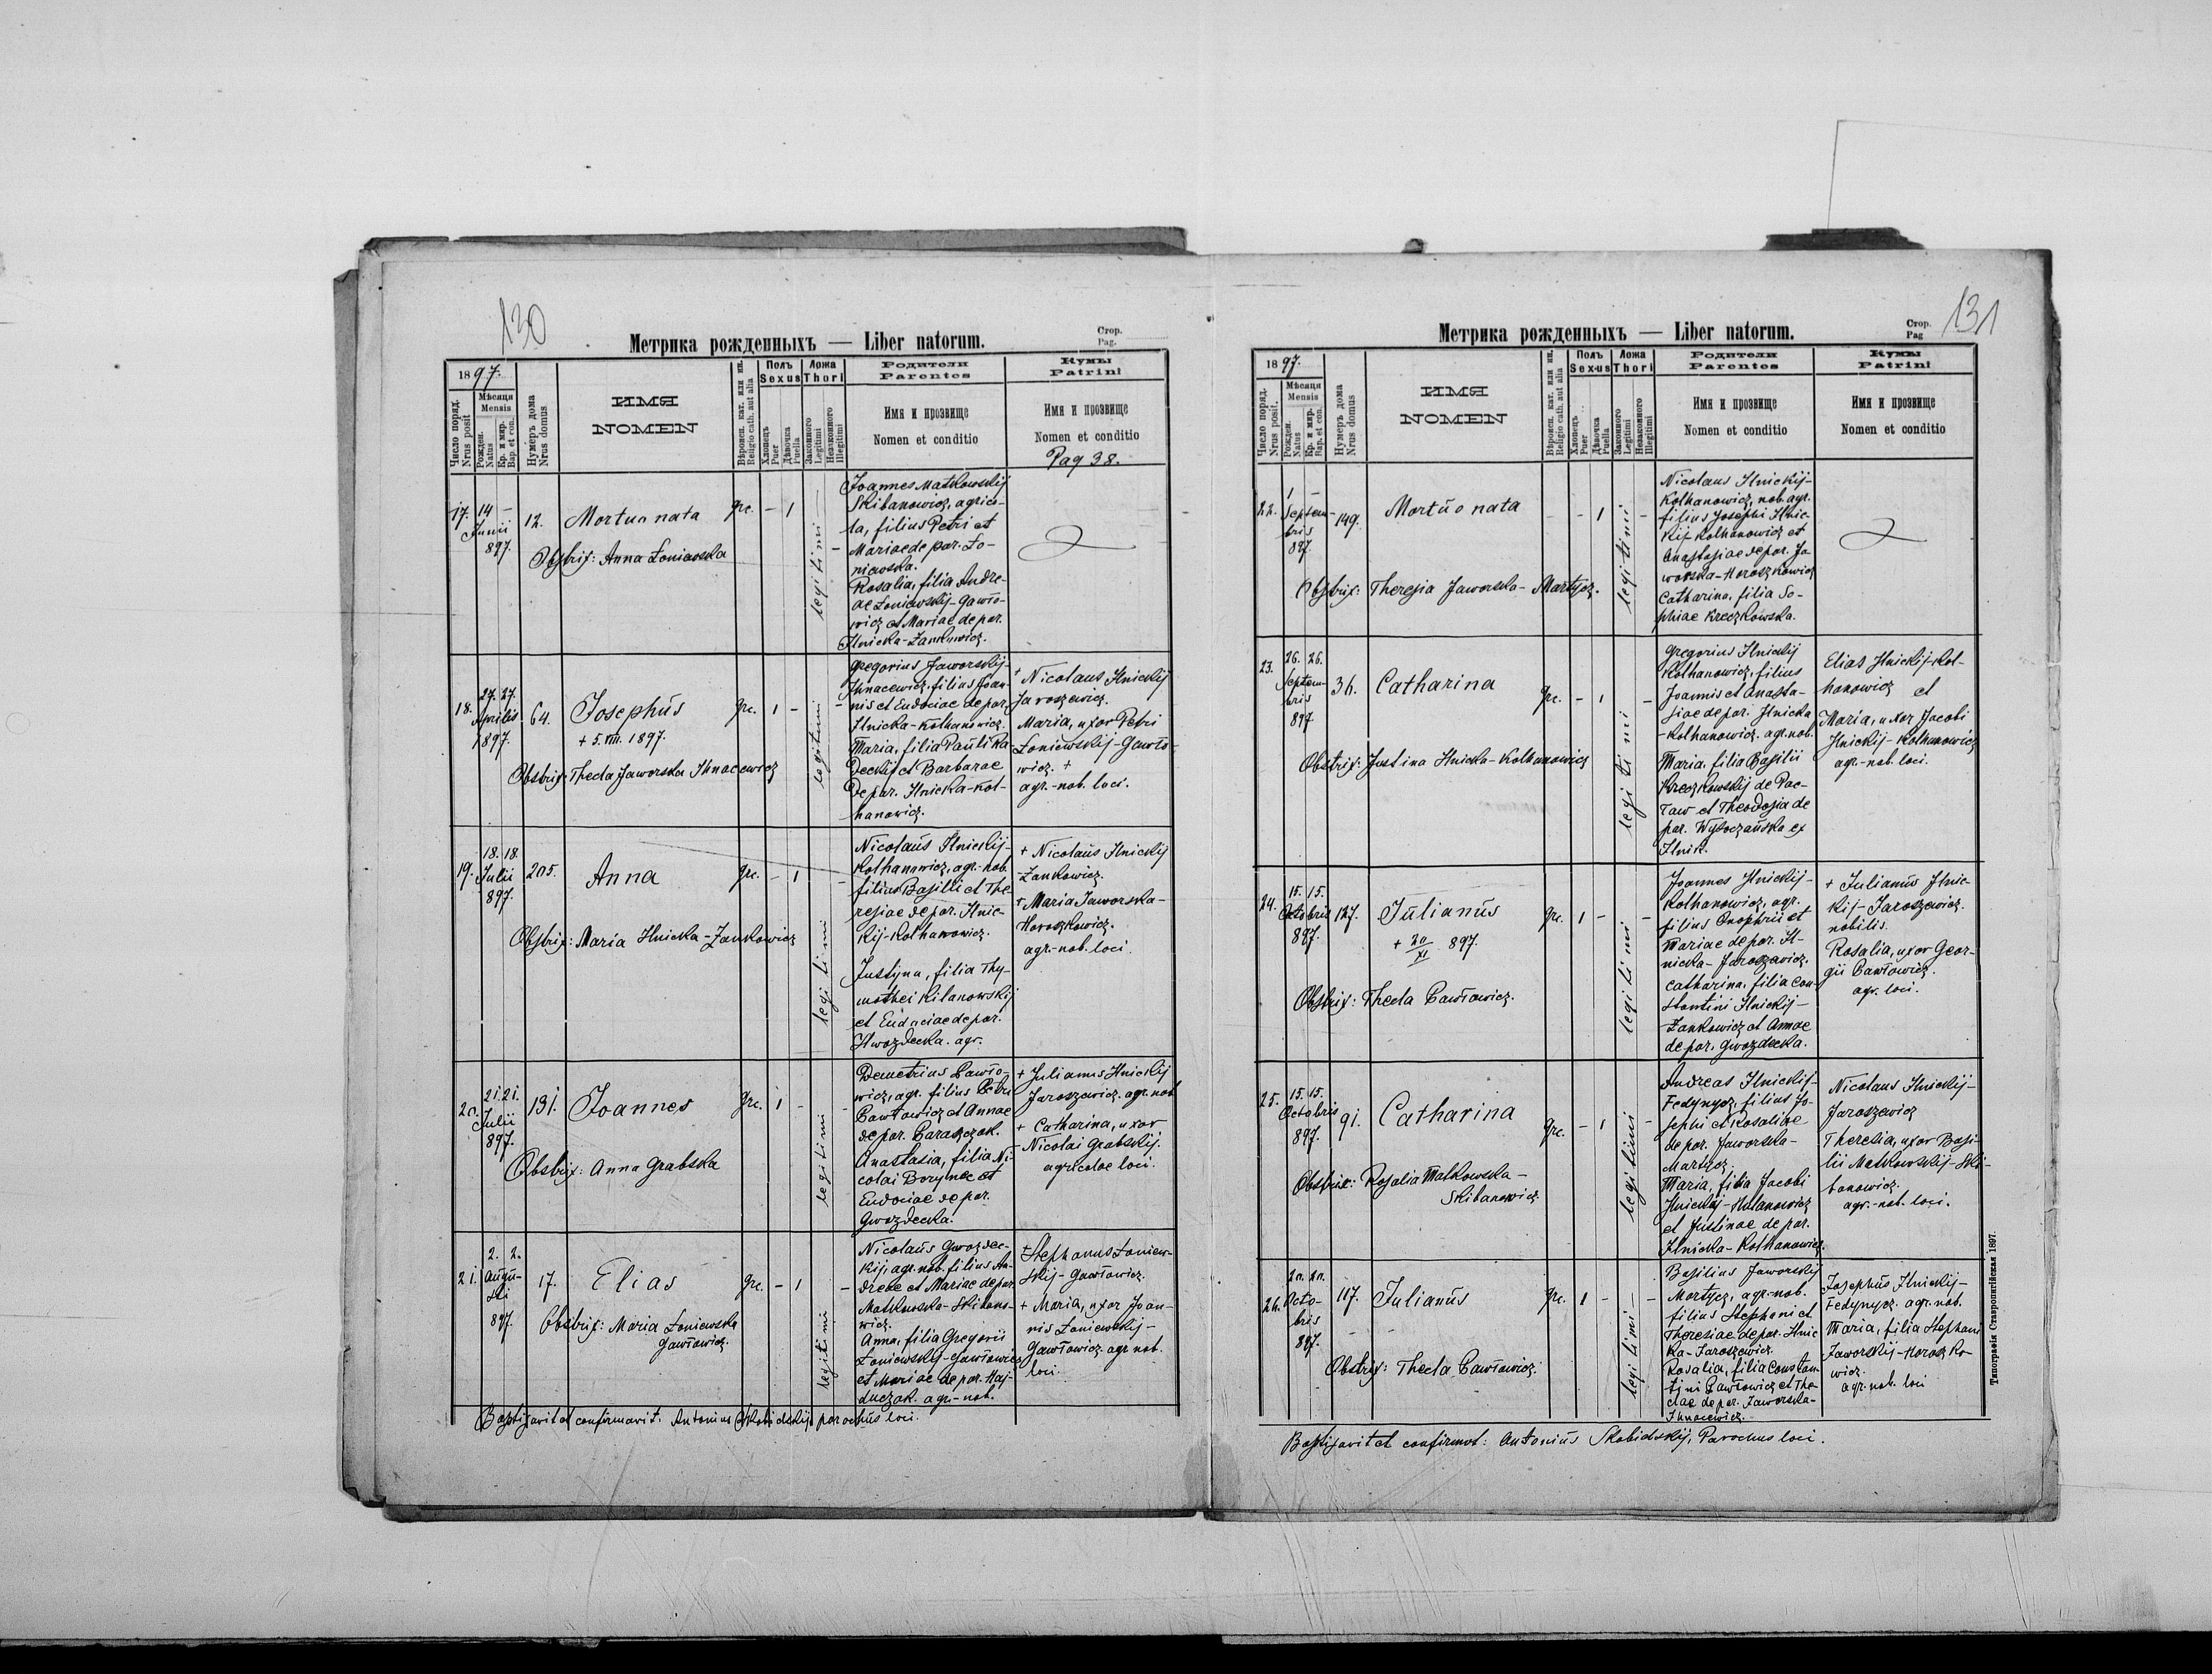 130
Метрика рожденныхъ — Liber natorum.
Стор.
Pag.
1897.
Число поряд.
Nrus posit
Мѣсяця
Mensis
Рожден.
Natus
Кр. и мир.
Bap. et con.
Нумеръ дома
Nrus domus
ИМЯ
NOMEN
Вѣроисп. кат. или ин.
Religio cath. aut alia
Полъ
Sexus
Хлопецъ
Puer
Дѣвочка
Puella
Ложа
Thori
Законного
Legitimi
Незаконного
Illegitimi
Родители
Parentes
Имя и прозвище
Nomen et conditio
Кумы
Patrini
Имя и прозвище
Nomen et conditio
Pag 38.
17. 14 –
Junii
897.
12.
Mortuo nata
Obstrix: Anna Łoniewska
gre. – 1
legitimi
Joannes Matkowskij
Skibanowicz, agrico-
la, filius Petri et
Mariae de par. Ło-
niewska.
Rosalia, filia Andre-
ae Łoniewskij-Gawło-
wicz et Mariae de par.
Ilnicka-Zankowicz.
18. 27. 27.
Aprilis
1897.
64.
Josephus
+ 5.VIII. 1897.
Obstrix: Thecla Jaworska Ihnacewicz
gre. 1 –
legitimi
Gregorius Jaworskij-
Ihnacewicz, filius Joan-
nis et Eudociae de par.
Ilnicka-Kolhanowicz.
Maria, filia Pauli Ka
deckij et Barbarae
de par. Ilnicka-Kol-
hanowicz.
+ Nicolaus Ilnickij
Jaroszewicz.
Maria, uxor Petri
Łoniewskij-Gawło-
wicz. +
agr.-nob. loci.
19. 18. 18.
Julii
897.
205.
Anna
Obstrix: Maria Ilnicka-Zankowicz
gre. – 1
legitimi
Nicolaus Ilnickij-
Kolhanowicz, agr.-nob.
filius Basilii et The-
resiae de par. Ilnic-
kij-Kolhanowicz.
Justyna, filia Thy-
mothei Kilanowskij
et Eudociae de par.
Hwozdecka. agr.
+ Nicolaus Ilnickij
-Zankowicz.
+ Maria Jaworska-
Horoszkowicz.
agr.-nob. loci.
20. 21. 21.
Julii
897.
131.
Joannes
Obstrix: Anna Grabska
gre. 1 –
legitimi
Demetrius Pawło-
wicz, agr. filius Petri
Pawłowicz et Annae
de par. Paraszczak.
Anastasia, filia Ni-
colai Borynec et
Eudociae de par.
Gwozdecka.
+ Julianus Ilnickij
Jaroszewicz. agr. nob
+ Catharina, uxor
Nicolai Grabskij.
agricolae loci.
21. 2. 2.
Augu-
sti
897.
17.
Elias
Obstrix: Maria Łoniewska
Gawłowicz.
gre. – 1 –
legitimi
Nicolaus Gwozdec-
kij, agr. nob. filius An-
dreae et Mariae de par.
Matkowska-Skibano-
wicz.
Anna, filia Gregorii
Łoniewskij-Gawłowicz
et Mariae de par. Haj-
duczak. agr.-nob.
+ Stephanus Łoniew-
skij-Gawłowicz.
+ Maria, uxor Joan-
nis Łoniewskij-
Gawłowicz. agr nob.
loci.
Baptisavit et confirmavit: Antonius Skobielskij parochus loci.
131
Метрика рожденныхъ — Liber natorum.
Стор.
Pag
1897.
Число поряд.
Nrus posit.
Мѣсяця
Mensis
Рожден.
Natus
Кр. и мир.
Bap. et con.
Нумеръ дома
Nrus domus
ИМЯ
NOMEN
Вѣроисп. кат. или ин.
Religio cath. aut alia
Полъ
Sexus
Хлопецъ
Puer
Дѣвочка
Puella
Ложа
Thori
Законного
Legitimi
Незаконного
Illegitimi
Родители
Parentes
Имя и прозвище
Nomen et conditio
Кумы
Patrini
Имя и прозвище
Nomen et conditio
22. 1 –
Septem-
bris
897.
149.
Mortuo nata
Obstrix: Theresia Jaworska-Martycz.
– – 1 –
legitimi
Nicolaus Ilnickij-
Kolhanowicz, nob. agr.
filius Josephi Ilnic-
kij Kolhanowicz et
Anastasiae de par. Ja-
worska-Horoszkowicz
Catharina, filia So-
phiae Kreczkowska.
23. 26. 26.
Septem-
bris
897
36.
Catharina
Obstrix: Justina Ilnicka-Kolhanowicz
gre. – 1 –
legitimi
Gregorius Ilnickij
Kolhanowicz, filius
Joannis et Anasta-
siae de par. Ilnicka
-Kolhanowicz. agr. nob.
Maria, filia Basilii
Kreczkowskij de Pac-
ław et Theodosia de
par. Wysoczańska ex
Ilnik.
Elias Ilnickij-Kol-
hanowicz et
Maria, uxor Jacobi
Ilnickij-Kolhanowicz
agr.-nob. loci.
24. 15. 15.
Octobris
897.
127.
Julianus
+ 20/XI 897.
Obstrix: Thecla Pawłowicz.
gre. 1 – –
legitimi
Joannes Ilnickij-
Kolhanowicz, agr.
filius Onophrii et
Mariae de par. Il-
nicka-Jaroszewicz.
Catharina, filia Con-
stantini Ilnickij-
Zankowicz et Annae
de par. Gwozdecka.
+ Julianus Ilnic-
kij-Jaroszewicz.
nobilis.
Rosalia, uxor Geor-
gii Pawłowicz.
agr. loci.
25. 15. 15.
Octobris
897.
91.
Catharina
Obstrix: Rosalia Matkowska-
Skibanowicz
gre. – 1 –
legitimi
Andreas Ilnickij-
Fedynycz, filius Jo-
sephi et Rosaliae
de par. Jaworska-
Martycz.
Maria, filia Jacobi
et Justinae de par.
Ilnicka-Kolhanowicz.
Nicolaus Ilnickij-
Jaroszewicz
Theresia, uxor Basi-
lii Matkowskij-Ski-
banowicz.
agr.-nob. loci.
26. 20. 20.
Octo-
bris
897.
117.
Julianus
Obstrix: Thecla Pawłowicz.
gre. 1 – –
legitimi
Basilius Jaworskij
Martycz, agr.-nob.
filius Stephani et
Theresiae de par. Ilnic
ka-Jaroszewicz.
Rosalia, filia Constan-
tini Pawłowicz et The-
clae de par. Jaworska-
Ihnacewicz.
Josephus Ilnickij-
Fedynycz. agr. nob.
Maria, filia Stephani
Jaworskij-Horoszko-
wicz.
agr. nob. loci
Baptisavit et confirmat: Antonius Skobielskij, Parochus loci.
Типографія Ставропигійская 1897.